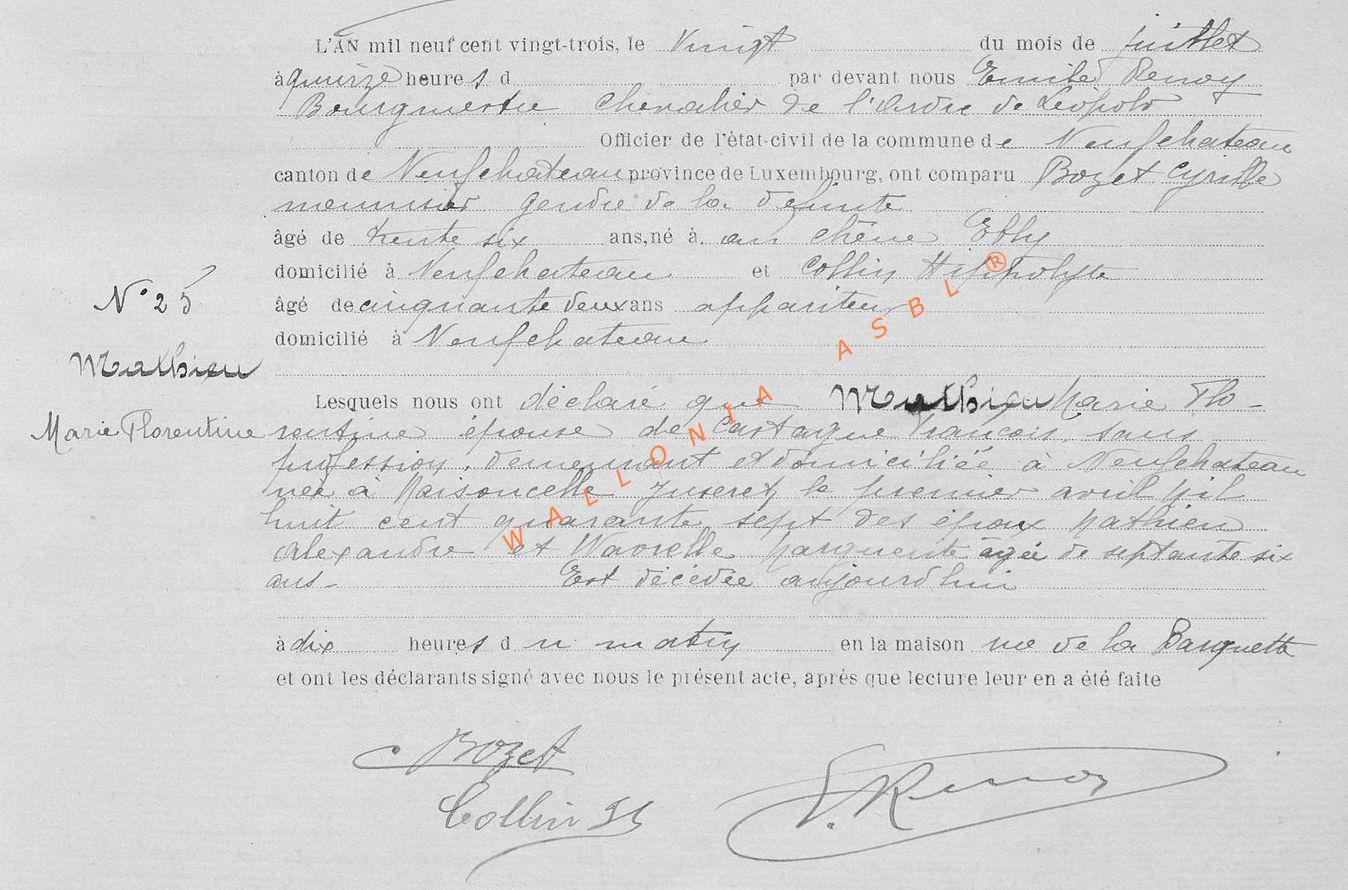 L'AN mil neuf cent vingt-trois, le Vingt du mois de juillet
à quinze heures d par devant nous Emile Renoy
Bourgmestre Chevalier de l'Ordre de Léopold
Officier de l'état-civil de la commune de Neufchateau
canton de Neufchateau province de Luxembourg, ont comparu Bozet Cyrille
meunier gendre de la défunte
âgé de trente six ans, né à au chêne Ebly
domicilié à Neufchateau et Collin Hippolyte
N° 25
âgé de cinquante deux ans appariteur
domicilié à Neufchateau
Mathieu
Marie Florentine
Lesquels nous ont déclaré que Mathieu Marie Flo-
rentine épouse de Castagne François, sans
profession, demeurant et domiciliée à Neufchateau
née à Maisoncelle Juseret, le premier avril mil
huit cent quarante sept des époux Mathieu
Alexandre et Marguerite âgée de septante six
ans - Est décédée aujourd'hui
à dix heures du matin en la maison rue de la Barquette
et ont les déclarants signé avec nous le présent acte, après que lecture leur en a été faite
C Bozet
Collin H
E. Renoy
WALLONIA ASBL ®